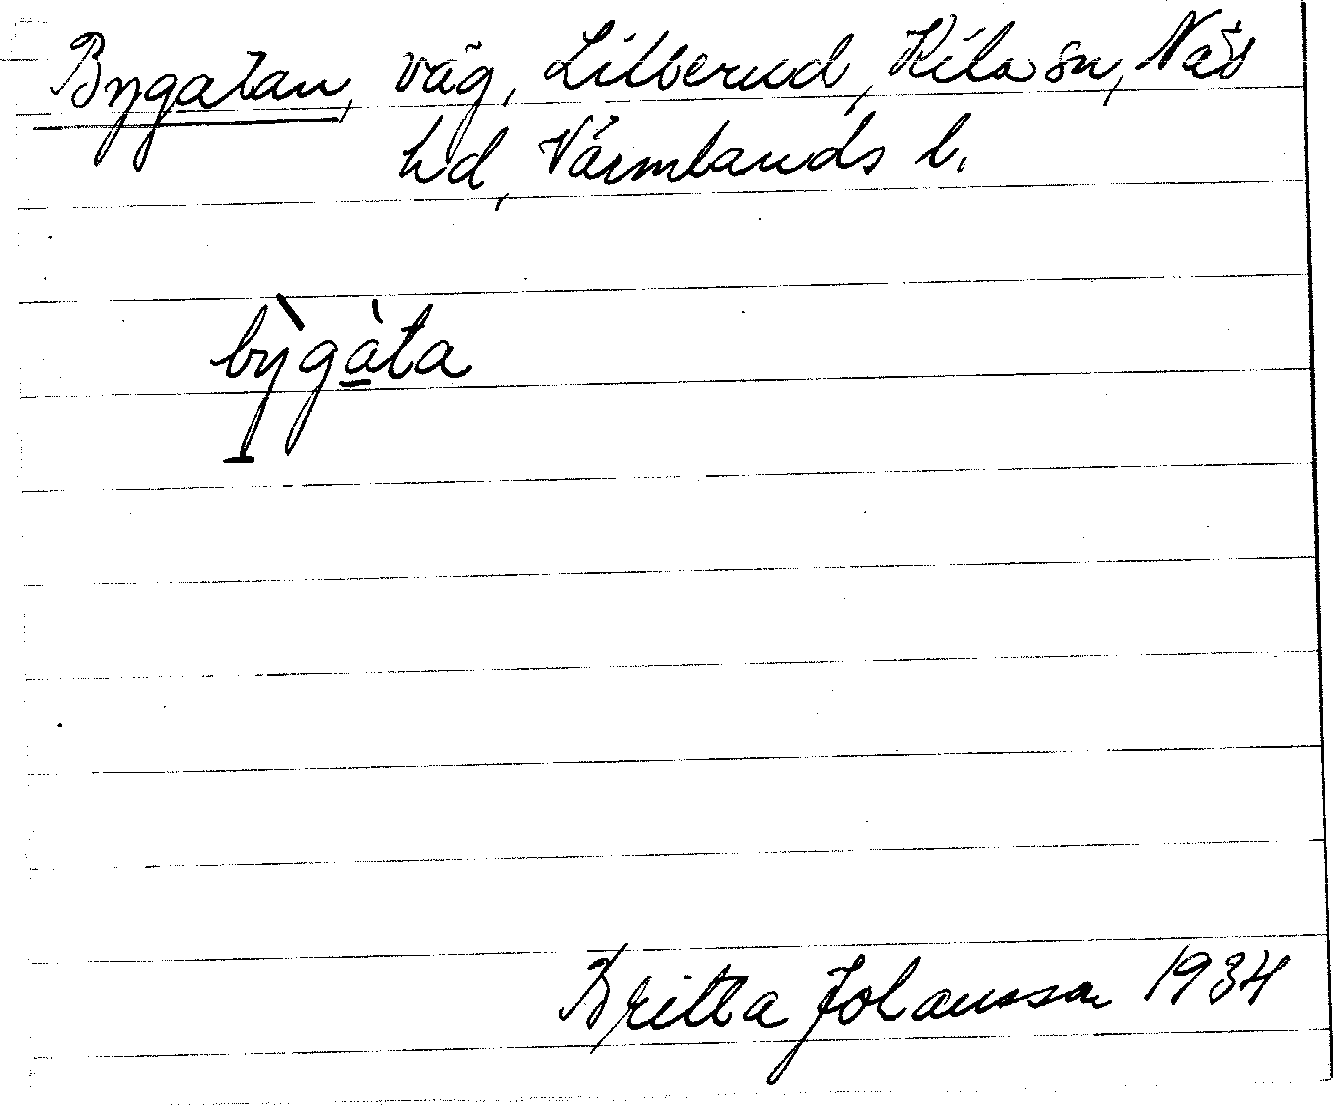 Bygatan, väg, Lillerud, Kila sn, Näs
hd, Värmlands l.
bỳgàta
Britta Johansson 1934